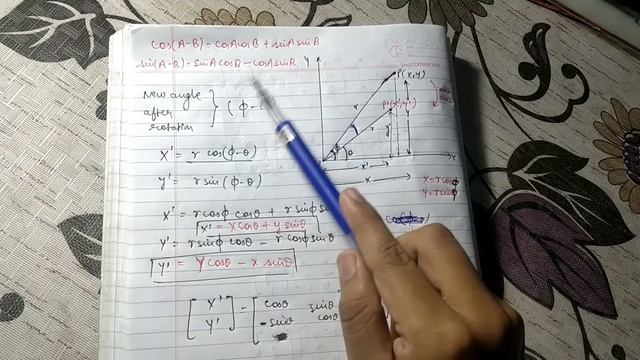 cos(A-B) = cosAcosB + sinA sinB
sin(A-B) = sinA cosB - cosA sinB
New angle
after
rotation
(ϕ-
x' = r cos(ϕ-θ)
y' = r sin(ϕ-θ)
x' = r cosϕ cosθ + r sinϕ
x' = x cosθ + y sinθ
y' = r sinϕ cosθ - r cosϕ sinθ
y' = y cosθ - x sinθ
[x' y'] = [cosθ sinθ
-sinθ cosθ
y
P(x,y)
P'(x',y')
r
r
θ
x
x'
x
x = r cosϕ
y = r sinϕ